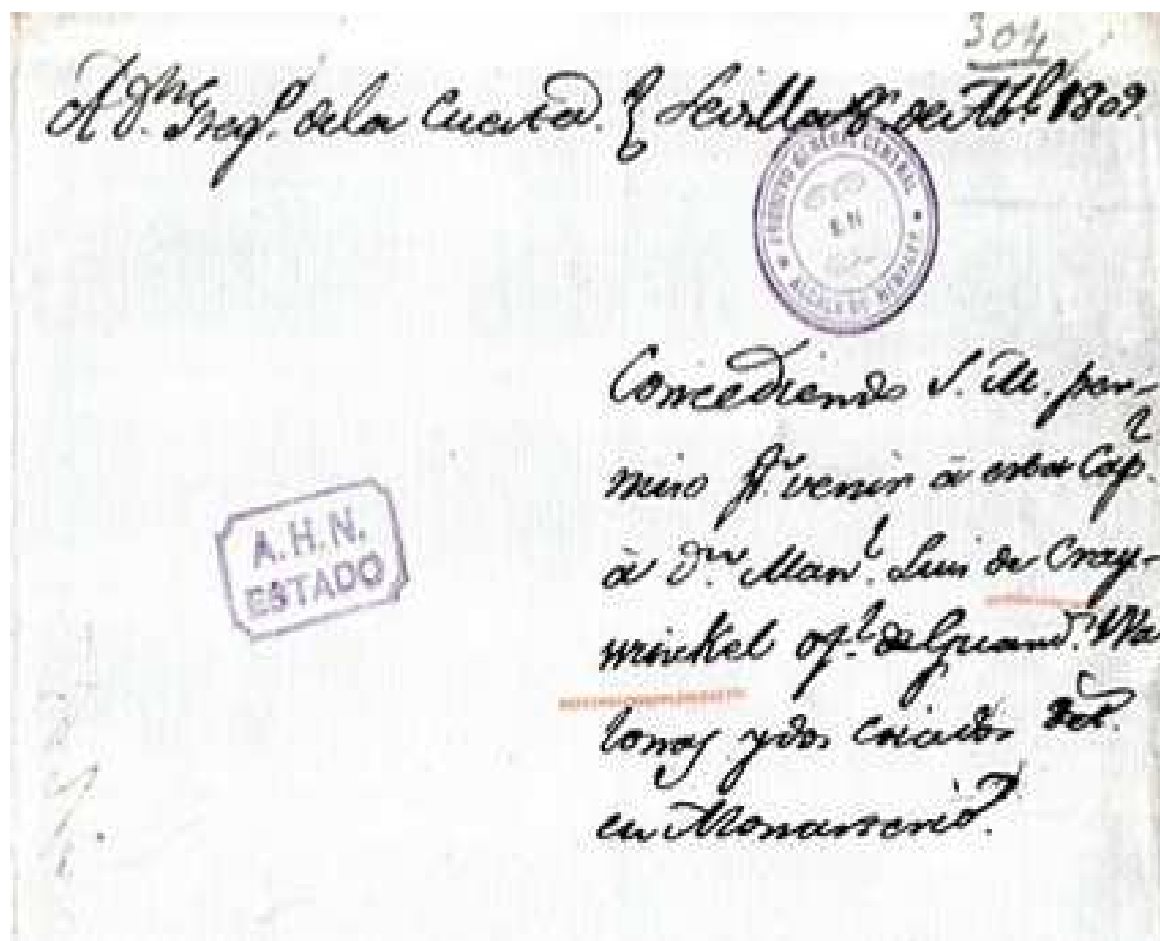 304
A Dn. Greg.º de la Cuesta. Sevilla de Abl. 1809.
ARCHIVO GENERAL CENTRAL
ALCALA DE HENARES
Concediendo S. M. per-
miso pª. venir à esta Cap.l
à Dn. Man.l Luis de Cray-
winckel of.l de Guard.s Wa
lonas y dos criados det.
en Monasterio.
A.H.N.
ESTADO